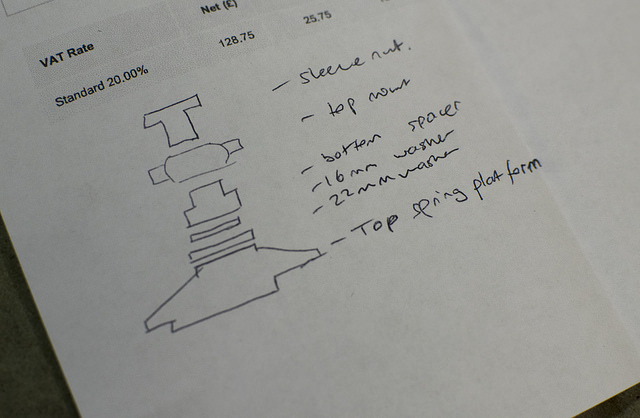 Net (£)
VAT Rate
128.75
25.75
Standard 20.00%
- sleeve nut.
- top mount
- bottom spacer
- 16mm washer
- 22mm washer
- Top spring platform